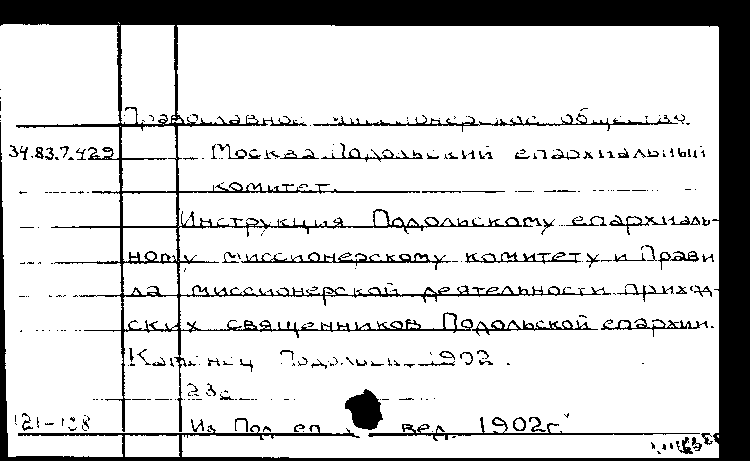 Православное миссионерское общество
34.83.7.429 Москва. Подольский епархиальный
комитет.
Инструкция Подольскому епархиаль-
ному миссионерскому комитету и Прави
ла миссионерской деятельности приход-
ских священников Подольской епархии.
Каменец Подольск. 1902.
23с
121-128 Из Под еп вед. 1902г.